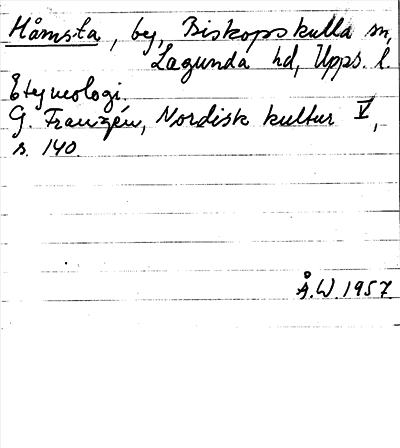 Håmsta, by, Biskopskulla sn,
Lagunda hd, Upps. l.
Etymologi.
G. Franzén, Nordisk kultur V,
s. 140.
Å.W. 1957.